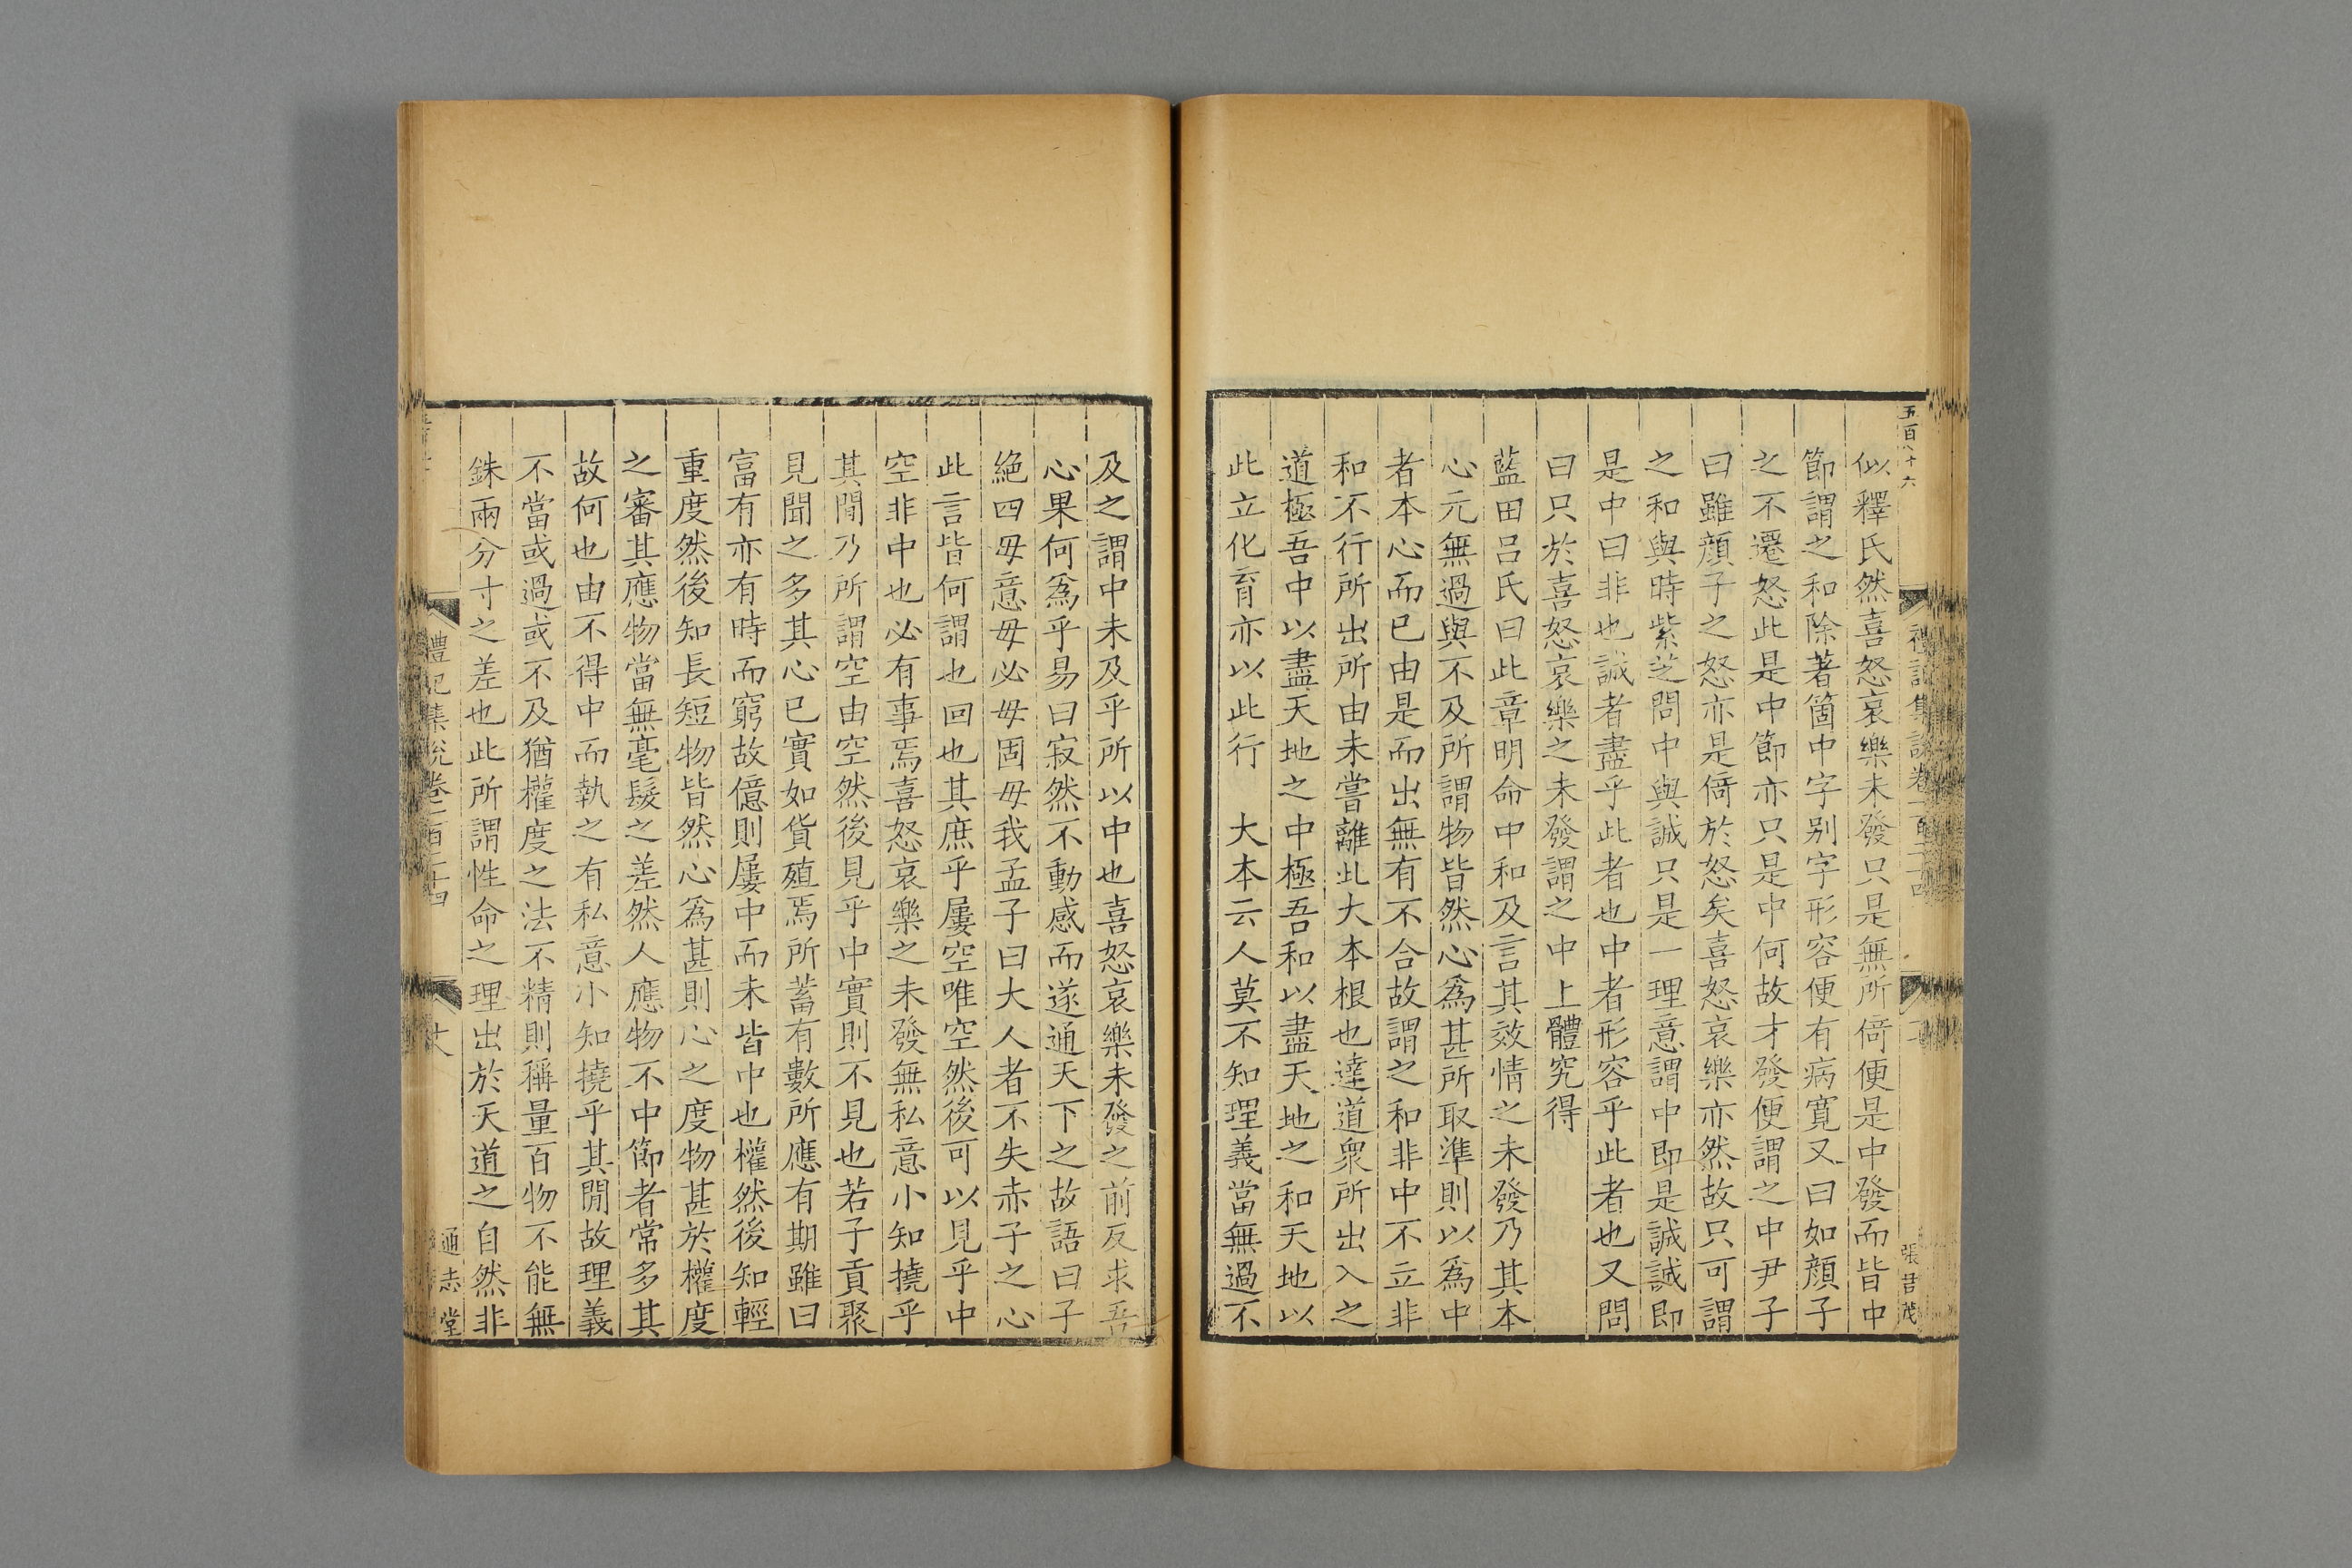 五百八十六
禮記集說卷一百二十四
張君茂
似釋氏然喜怒哀樂未發只是無所倚便是中發而皆中
節謂之和除著箇中字别字形容便有病寬又曰如顔子
之不遷怒此是中節亦只是中何故才發便謂之中尹子
曰雖顔子之怒亦是倚於怒矣喜怒哀樂亦然故只可謂
之和與時紫芝問中與誠只是一理意謂中即是誠誠即
是中曰非也誠者盡乎此者也中者形容乎此者也又問
曰只於喜怒哀樂之未發謂之中上體究得
藍田呂氏曰此章明命中和及言其效情之未發乃其本
心元無過與不及所謂物皆然心爲甚所取準則以爲中
者本心而已由是而出無有不合故謂之和非中不立非
和不行所出所由未嘗離此大本根也達道衆所出入之
道極吾中以盡天地之中極吾和以盡天地之和天地以
此立化育亦以此行　大本云人莫不知理義當無過不
及之謂中未及乎所以中也喜怒哀樂未發之前反求吾
心果何爲乎易曰寂然不動感而遂通天下之故語曰子
絶四毋意毋必毋固毋我孟子曰大人者不失赤子之心
此言皆何謂也回也其庶乎屢空唯空然後可以見乎中
空非中也必有事焉喜怒哀樂之未發無私意小知撓乎
其閒乃所謂空由空然後見乎中實則不見也若子貢聚
見聞之多其心已實如貨殖焉所蓄有數所應有期雖曰
富有亦有時而窮故億則屢中而未皆中也權然後知輕
重度然後知長短物皆然心爲甚則心之度物甚於權度
之審其應物當無毫髮之差然人應物不中節者常多其
故何也由不得中而執之有私意小知撓乎其閒故理義
不當或過或不及猶權度之法不精則稱量百物不能無
銖兩分寸之差也此所謂性命之理出於天道之自然非
禮記集說卷一百二十四
通志堂